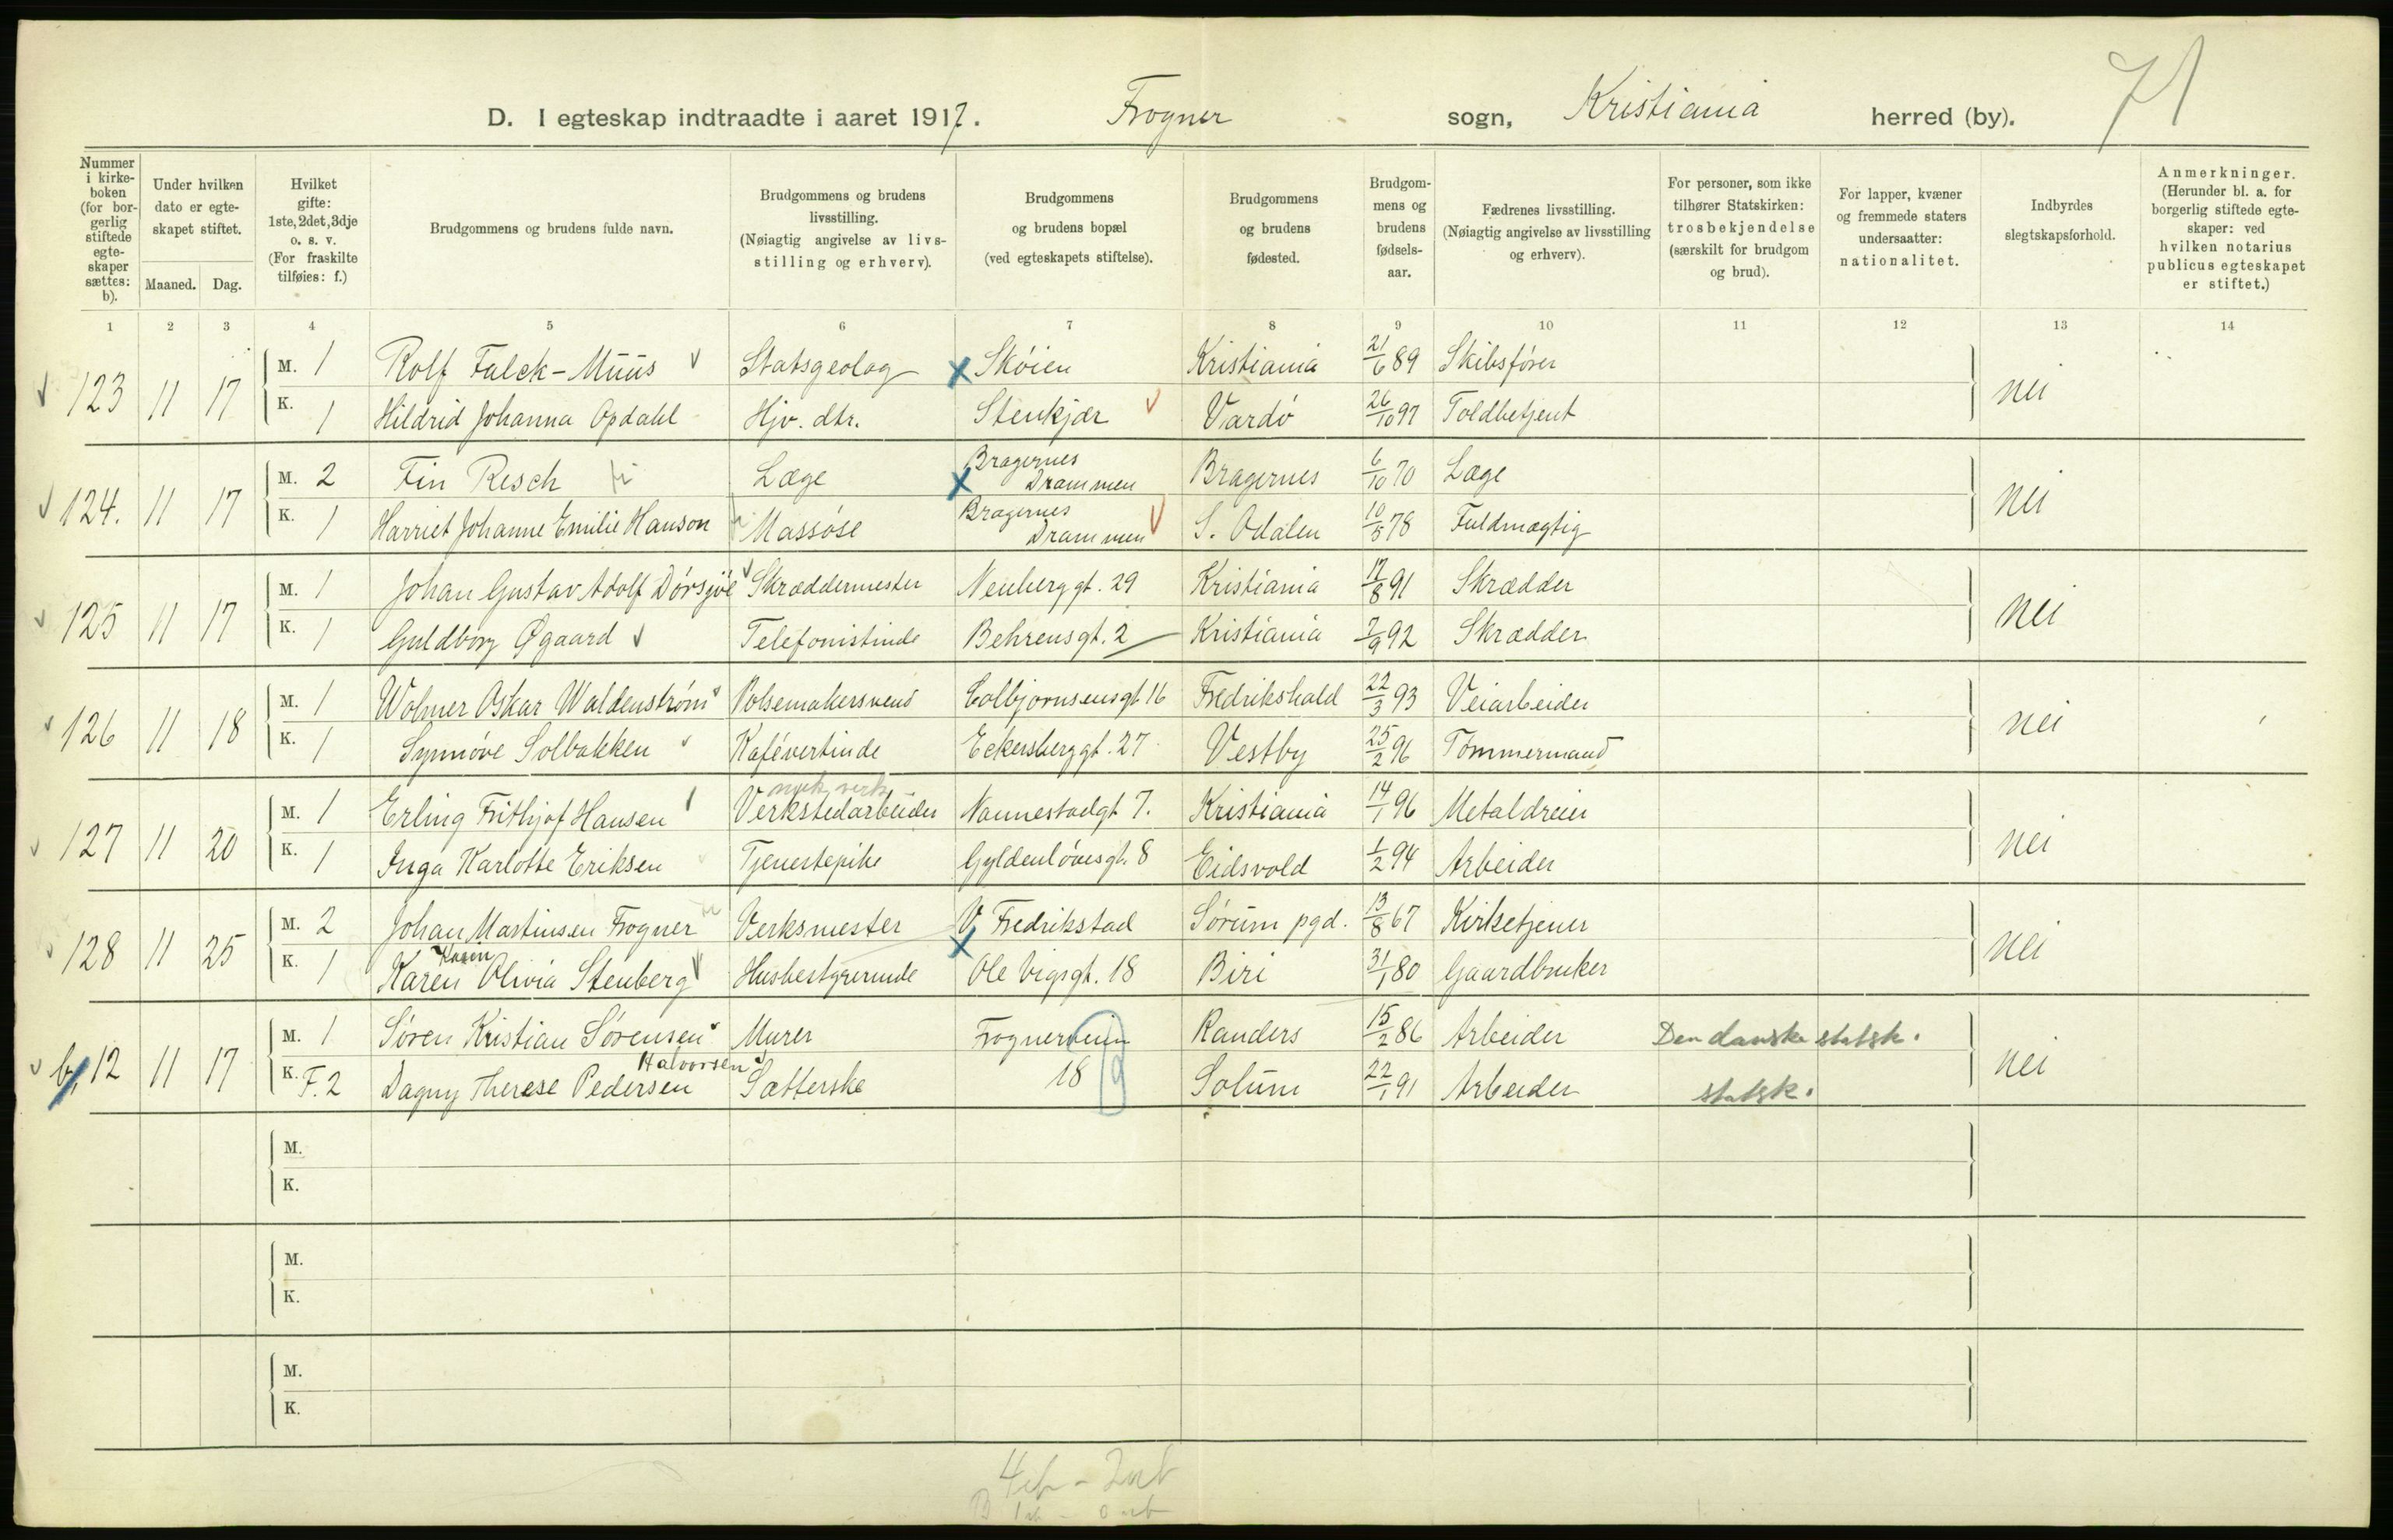 71
D. I egteskap indtraadte i aaret 1917. Frogner sogn, Kristiania herred (by).
Nummer i kirke-boken (for bor-gerlig stiftede egte-skaper sættes: b).
Under hvilken dato er egte-skapet stiftet.
Maaned. Dag.
Hvilket gifte: 1ste, 2det, 3dje o. s. v. (For fraskilte tilføies: f.)
Brudgommens og brudens fulde navn.
Brudgommens og brudens livsstilling. (Nøiagtig angivelse av livs-stilling og erhverv).
Brudgommens og brudens bopæl (ved egteskapets stiftelse).
Brudgommens og brudens fødested.
Brudgom-mens og brudens fødsels-aar.
Fædrenes livsstilling. (Nøiagtig angivelse av livsstilling og erhverv).
For personer, som ikke tilhører Statskirken: trosbekjendelse (særskilt for brudgom og brud).
For lapper, kvæner og fremmede staters undersaatter: nationalitet.
Indbyrdes slegtskapsforhold.
Anmerkninger. (Herunder bl. a. for borgerlig stiftede egte-skaper: ved hvilken notarius publicus egteskapet er stiftet.)
1 2 3 4 5 6 7 8 9 10 11 12 13 14
123 11 17 M. 1 Rolf Falck-Muus Statsgeolog Skøien Kristiania 21/6 89 Skibsfører nei
K. 1 Hildrid Johanna Opdahl Hjv. dtr. Stenkjær Vardø 26/10 97 Toldbetjent
124. 11 17 M. 2 Fin Resch Læge Bragernes Drammen Bragernes 6/10 70 Læge nei
K. 1 Harriet Johanne Emilie Hanson Massøse Bragernes Drammen S. Odalen 10/5 78 Fuldmægtig
125 11 17 M. 1 Johan Gustav Adolf Dørsjøe Skræddermester Neuberggt. 29 Kristiania 17/8 91 Skrædder nei
K. 1 Guldborg Øgaard Telefonistinde Behrensgt. 2 Kristiania 7/9 92 Skrædder
126 11 18 M. 1 Wolmer Oskar Waldenstrøm Pølsemakersvend Colbjørnsensgt 16 Fredrikshald 22/3 93 Veiarbeider nei
K. 1 Synnøve Solbakken Kafévertinde Eckersberggt. 27 Vestby 25/2 96 Tømmermand
127 11 20 M. 1 Erling Frithjof Hansen mek. verk. Verkstedarbeider Nannestadgt 7. Kristiania 14/1 96 Metaldreier nei
K. 1 Inga Karlotte Eriksen Tjenestepike Gyldenløvesgt. 8 Eidsvold 1/2 94 Arbeider
128 11 25 M. 2 Johan Martinsen Frogner Verksmester V. Fredrikstad Sørum pgd. 13/8 67 Kirketjener nei
Karin
K. 1 Karen Olivia Stenberg Husbestyrerinde Ole Vigsgt. 18 Biri 31/1 80 Gaardbruker
b, 12 11 17 M. 1 Søren Kristian Sørensen Murer Frognerveien Randers 15/2 86 Arbeider Den danske statsk. nei
Halvorsen
K. F. 2 Dagny Therese Pedersen Sætterske 18 Solum 22/1 91 Arbeider statsk.
M.
K.
M.
K.
M.
K.